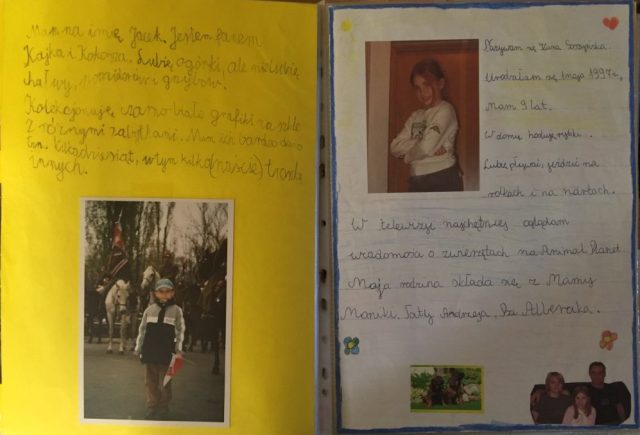 Mam na imię Jacek. Jestem fanem
Kajka i Kokosza. Lubię ogórki, ale nie lubię
chałwy, pomidorów i grzybów.
Kolekcjonuję czarno-białe grafiki na szkle
z różnymi zabytkami. Mam ich bardzo dużo
tzn. kilkadziesiąt, w tym kilka(naście)
innych.
Nazywam się
Urodziłam się 1 maja 1997 r.,
Mam 9 lat.
W domu hoduję rybki.
Lubię pływać, jeździć na
rolkach i na nartach.
W telewizji najchętniej oglądam
wiadomości o zwierzętach na Animal Planet
Moja rodzina składa się z Mamy
Moniki, Taty Andrzeja,